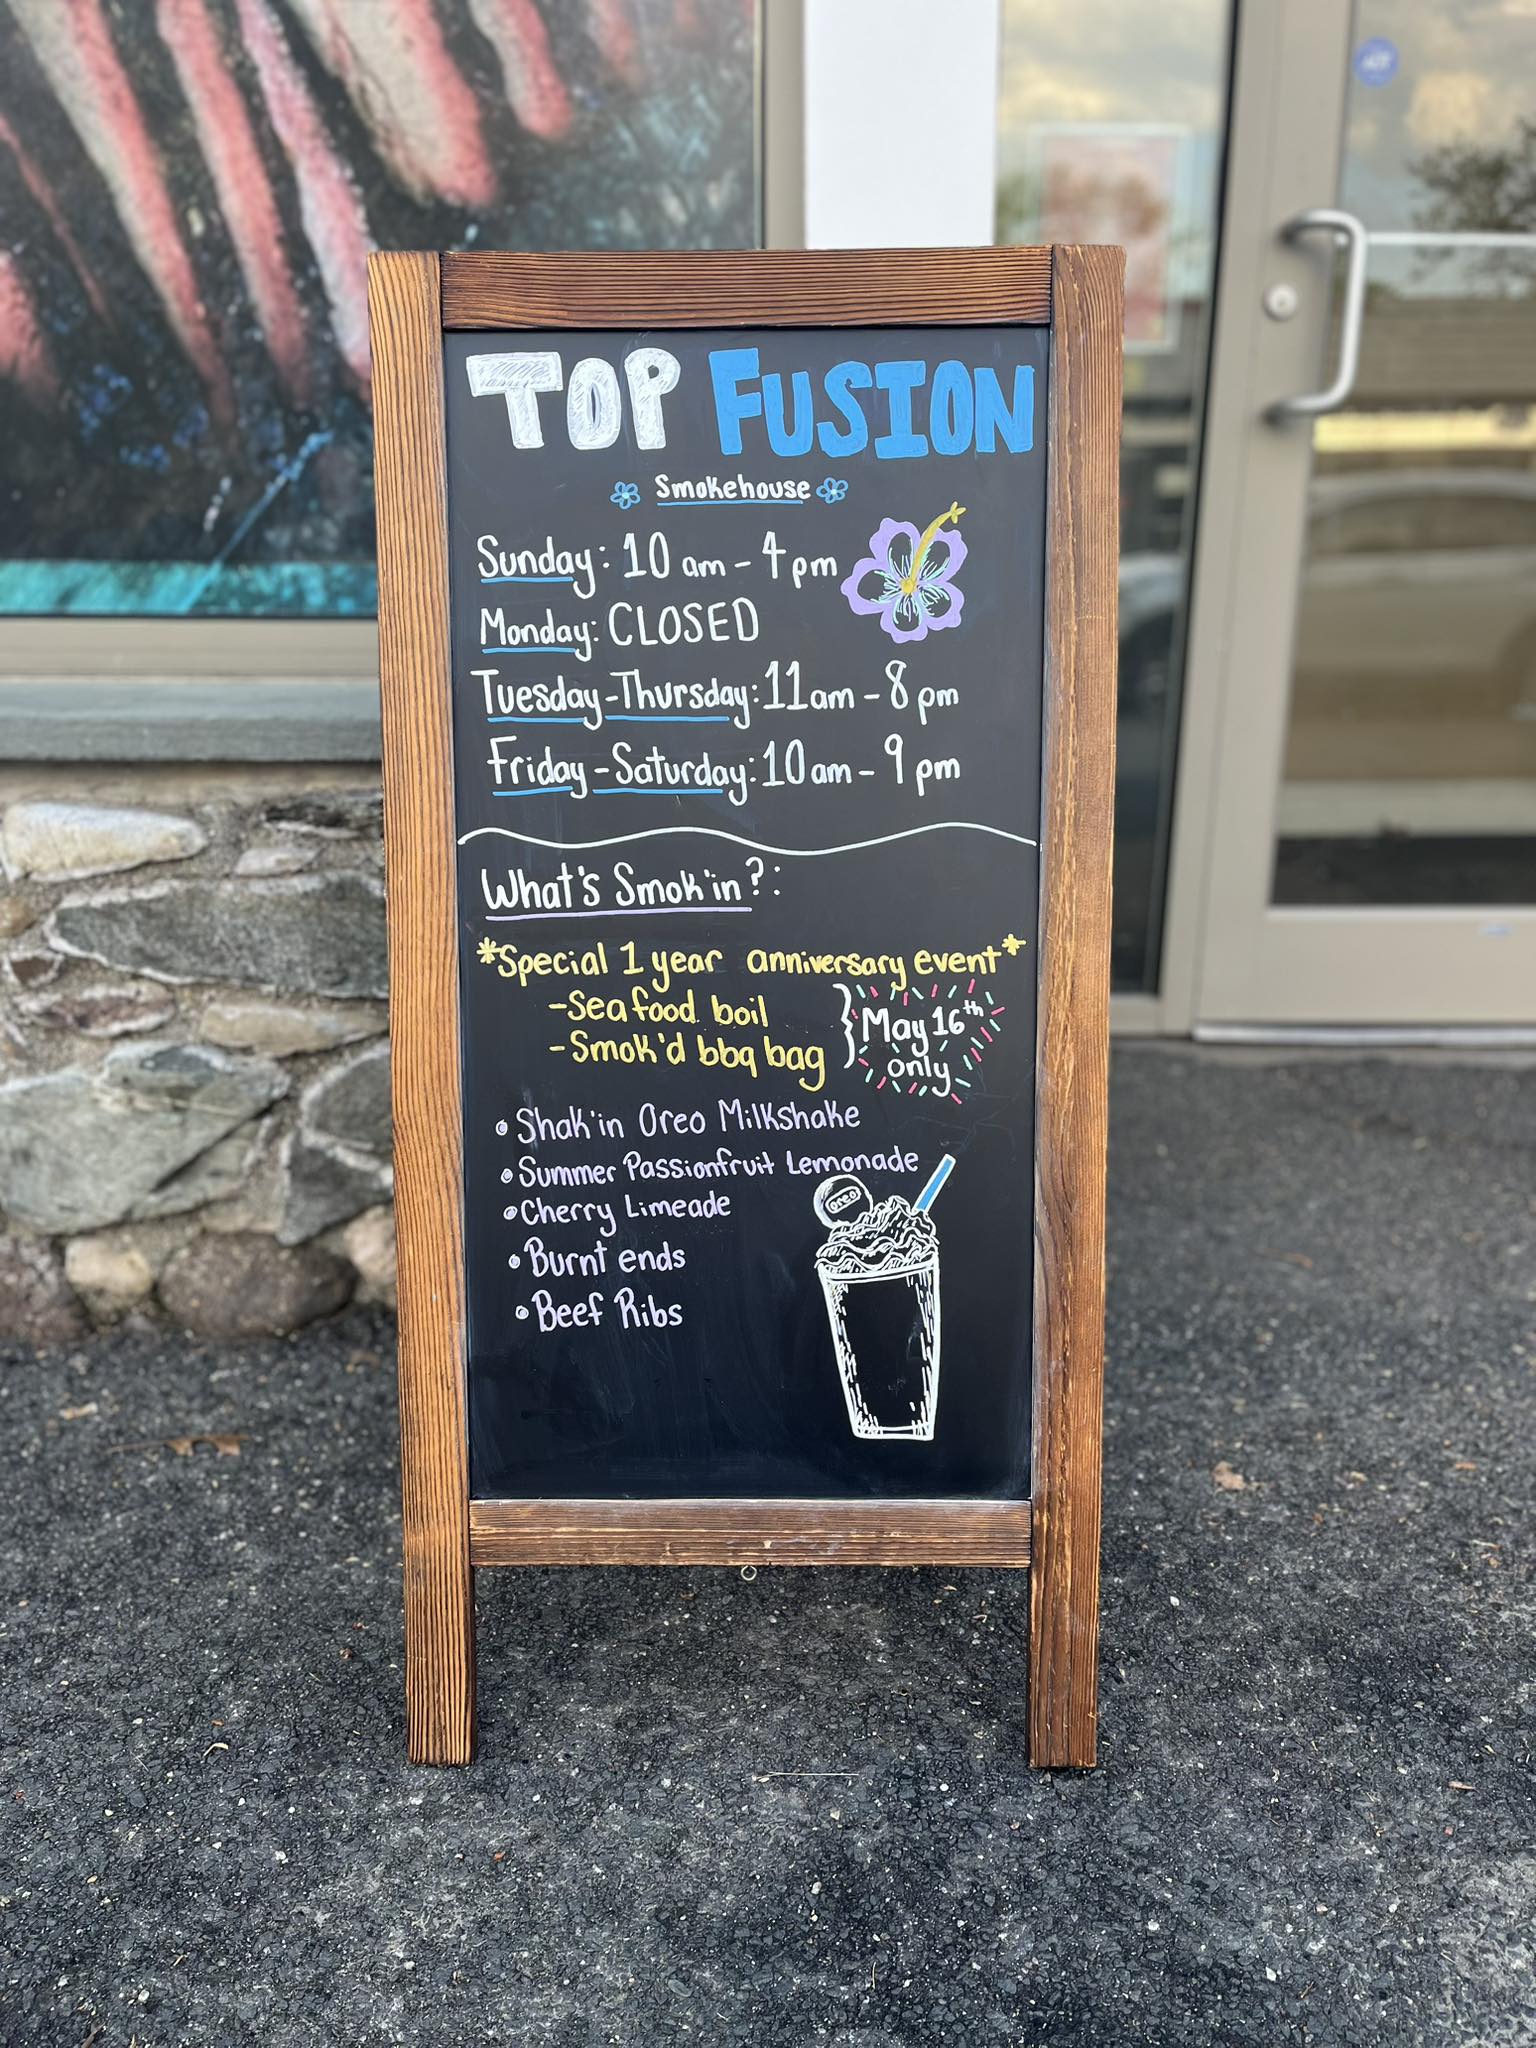 TOP FUSION
Smokehouse
Sunday: 10 am - 4 pm
Monday: CLOSED
Tuesday-Thursday: 11 am - 8 pm
Friday-Saturday: 10 am - 9 pm
What's Smok'in?:
*Special 1 year anniversary event*
-Seafood boil
-Smok'd bbq bag
} May 16th
only
• Shak'in Oreo Milkshake
• Summer Passionfruit Lemonade
• Cherry Limeade
• Burnt ends
• Beef Ribs
Oreo